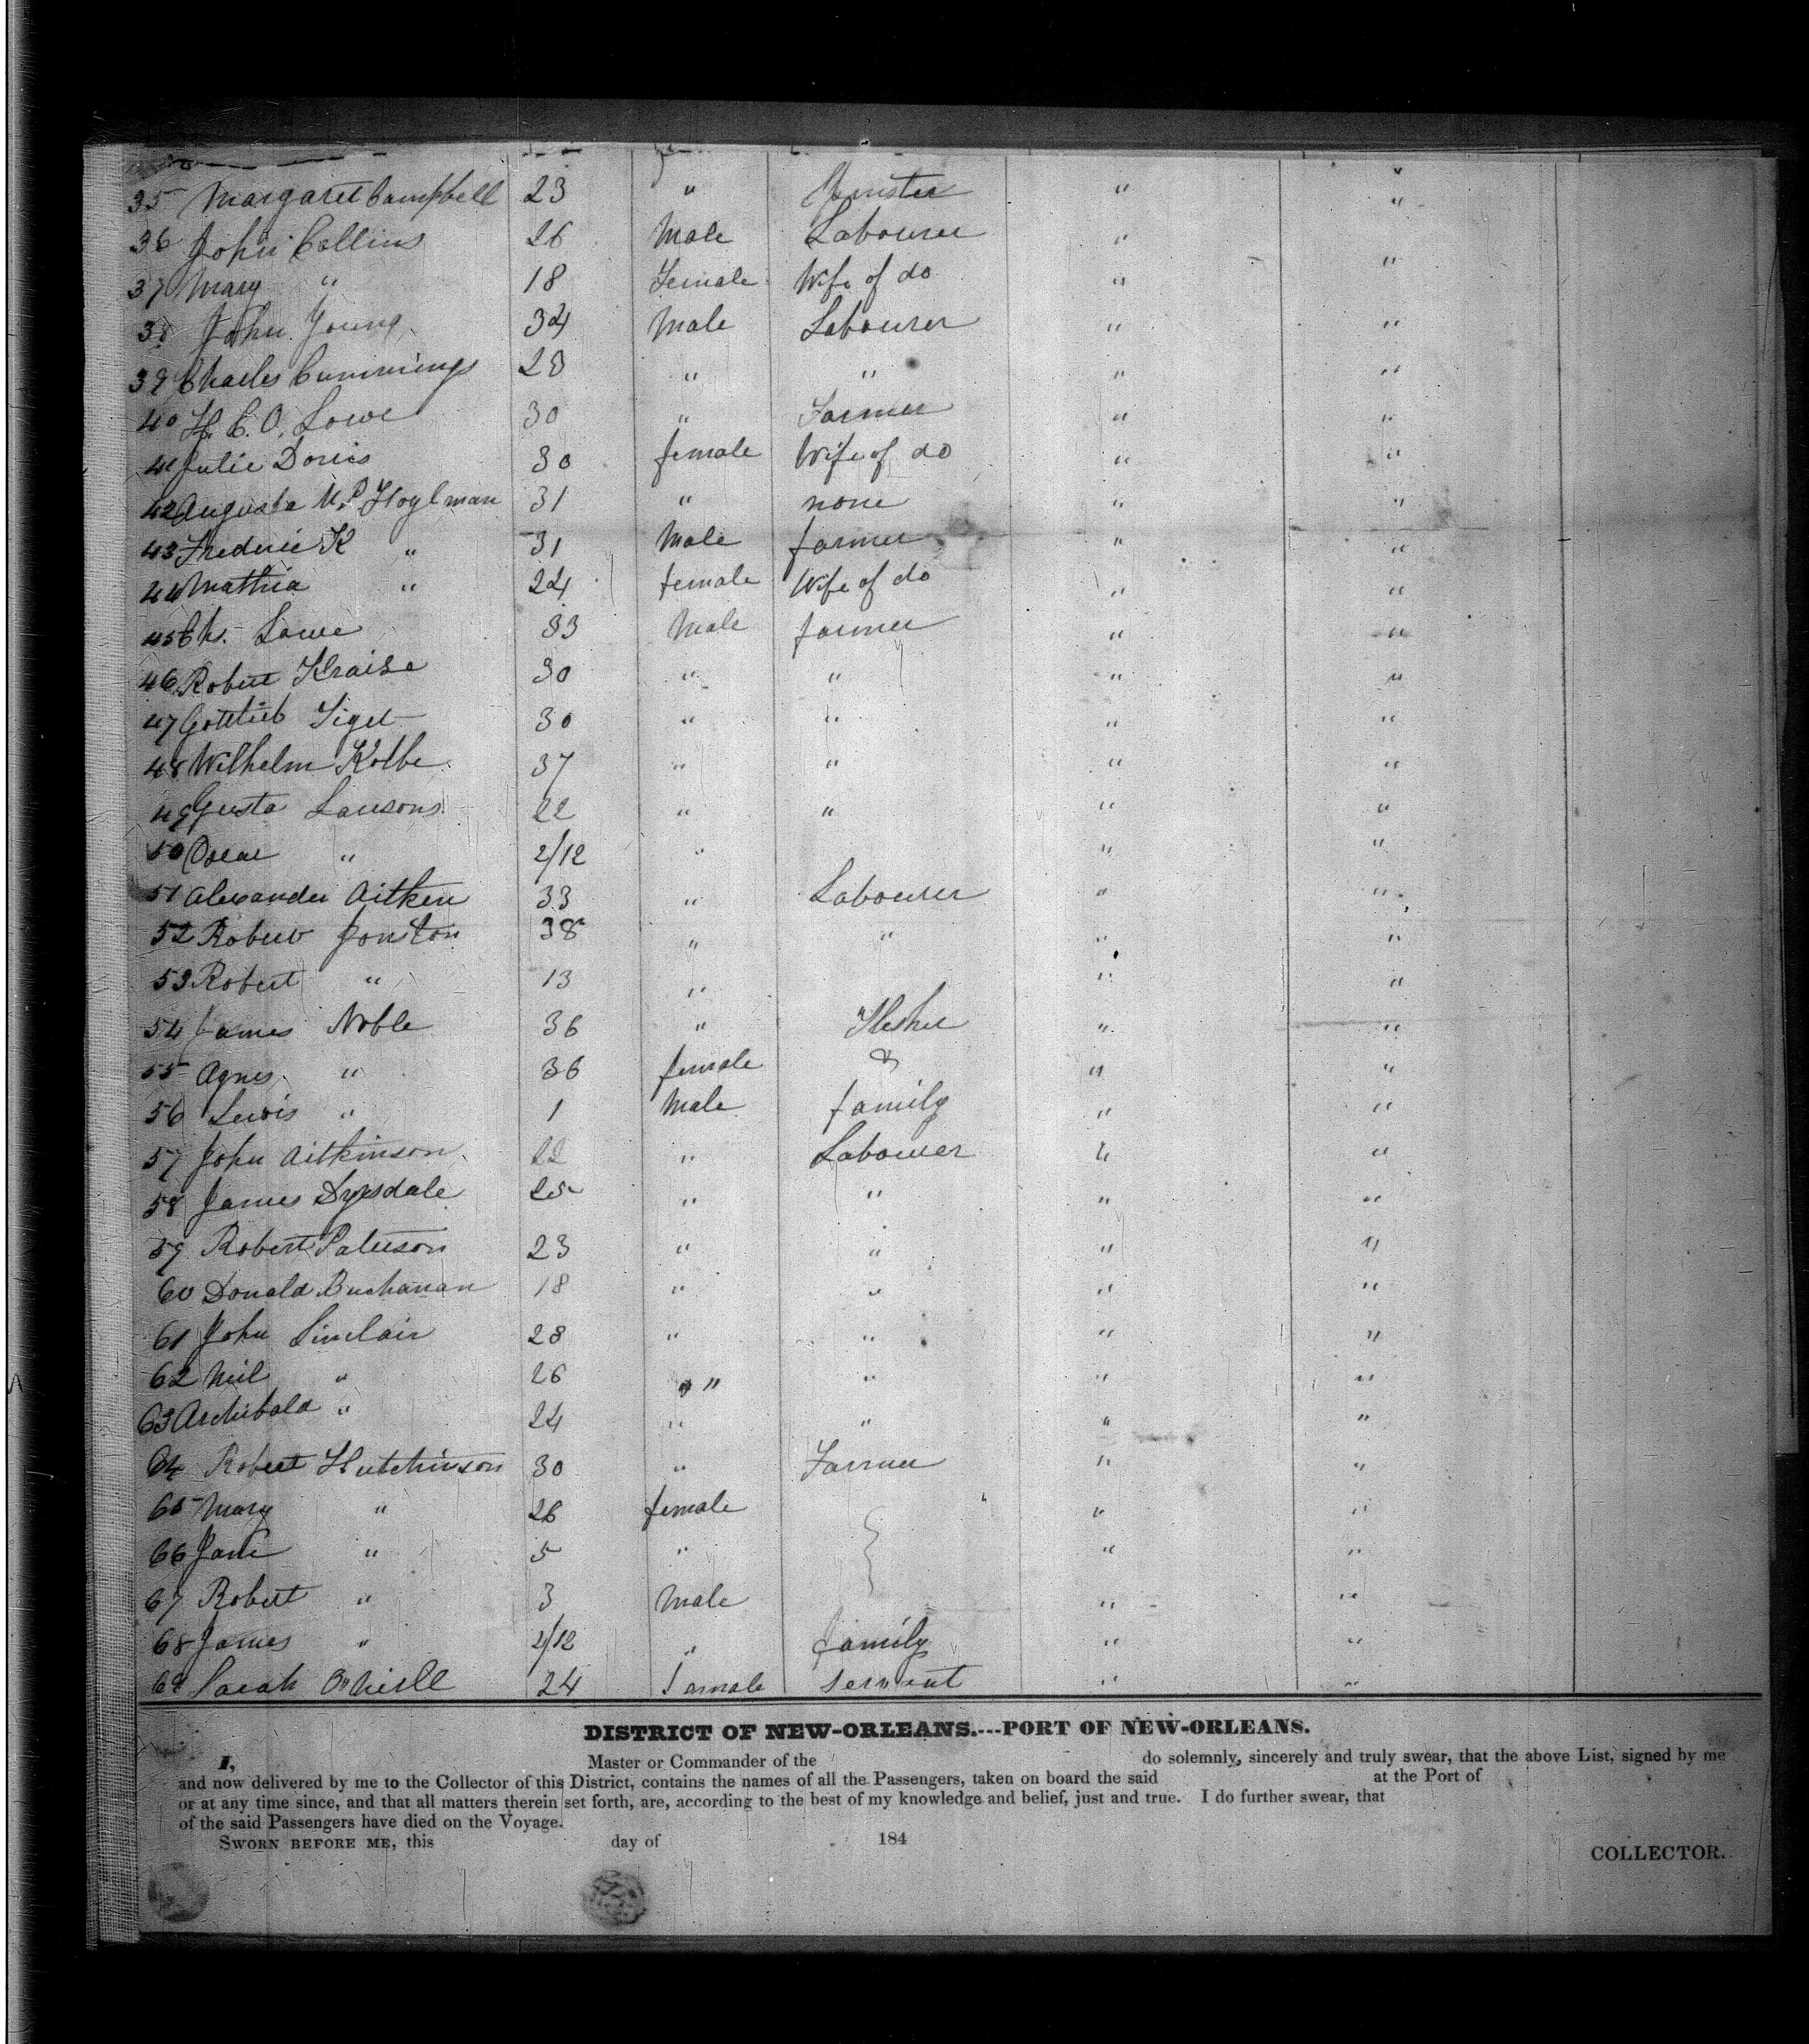 35 Margaret Campbell 23 " " "
36 John Collins 26 Male Labourer " "
37 Mary " 18 Female Wife of do " "
38 John Young 34 Male Labourer " "
39 Charles Cummings 28 " " " "
40 H. C. O. Lowe 30 " Farmer " "
41 Julie Doris 30 female Wife of do " "
42 Augusta 31 " none " "
43 Frederic K " 31 Male farmer " "
44 Mathia " 24 female Wife of do " "
45 Ch. Lowe 33 Male farmer " "
46 Robert Kraise 30 " " " "
47 Gottlieb 30 " " " "
48 Wilhelm Kolbe 37 " " " "
49 Gusta Lausons 22 " " " "
50 Oscar " 2/12 " " "
51 Alexander Aitken 33 " Labourer " "
52 Robert Jonston 38 " " " "
53 Robert " 13 " " "
54 James Noble 36 " Flesher " "
55 Agnes " 36 female & " "
56 Lewis " 1 Male family " "
57 John Aitkinson 22 " Labourer " "
58 James Drysdale 25 " " " "
59 Robert Paterson 23 " " " "
60 Donald Buchanan 18 " " " "
61 John Sinclair 28 " " " "
62 Neil " 26 " " " "
63 Archibald " 24 " " " "
64 Robert Hutchinson 30 " Farmer " "
65 Mary " 26 female " "
66 Jane " 5 " " "
67 Robert " 3 Male " "
68 James " 2/12 " family " "
69 Sarah O'Neill 24 Female servent " "
DISTRICT OF NEW-ORLEANS.---PORT OF NEW-ORLEANS.
I, Master or Commander of the do solemnly, sincerely and truly swear, that the above List, signed by me
and now delivered by me to the Collector of this District, contains the names of all the Passengers, taken on board the said at the Port of
or at any time since, and that all matters therein set forth, are, according to the best of my knowledge and belief, just and true. I do further swear, that
of the said Passengers have died on the Voyage.
SWORN BEFORE ME, this day of 184
COLLECTOR.